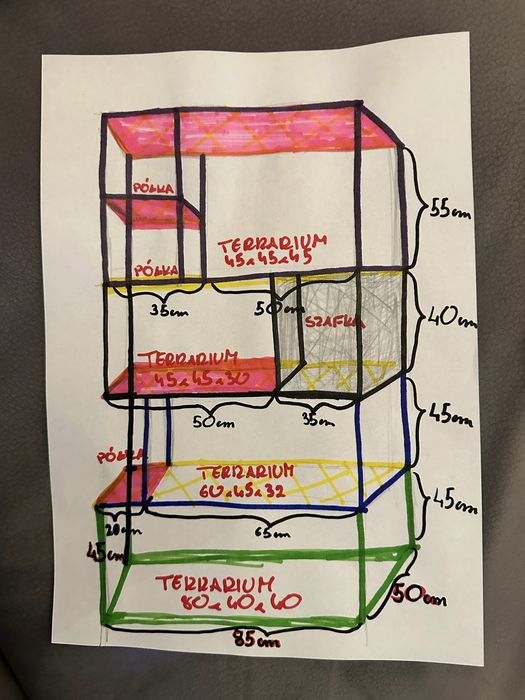 PÓŁKA
55cm
TERRARIUM
45x45x45
PÓŁKA
35cm
50cm
SZAFKA
40cm
TERRARIUM
45x45x30
50cm
35cm
45cm
PÓŁKA
TERRARIUM
60x45x32
45cm
20cm
65cm
45cm
TERRARIUM
80x40x40
50cm
85cm